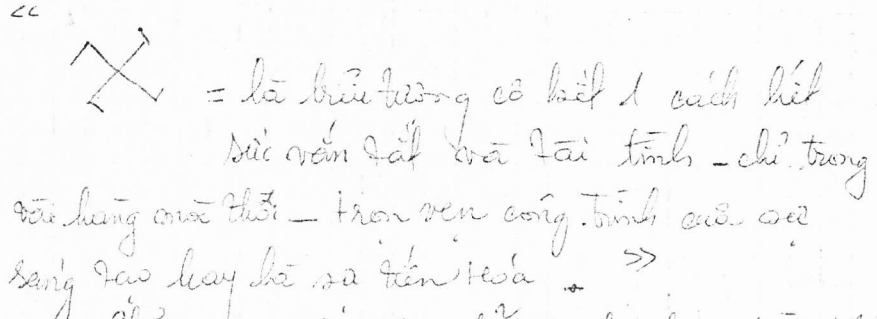 “
= là biểu tượng cô kết 1 cách hết
sức vắn tắt và tài tình - chỉ trong
vài hàng mà thôi - trọn vẹn công trình của sự
sáng tạo hay là sự tiến hóa . »